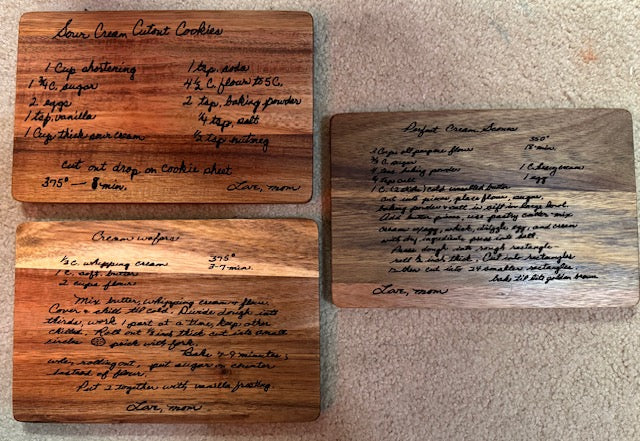 Sour Cream Cutout Cookies
1 Cup shortening
1 ¾ C. sugar
2 eggs
1 tsp. vanilla
1 Cup thick sour cream
1 tsp. soda
4 ½ C. flour to 5 C.
2 tsp. baking powder
¼ tsp. salt
½ tsp nutmeg
cut out drop on cookie sheet
375° — min.
Love, mom
Cream wafers
⅓ C. whipping cream
1 C. soft butter
2 cups flour
375°
7-9 min.
Mix butter, whipping cream & flour.
Cover & chill til cold. Divide dough into
thirds, work 1 part at a time, keep other
chilled. Roll out inch thick cut into small
circles prick with fork.
Bake 7-9 minutes;
when rolling out, put sugar on counter
instead of flour.
Put 2 together with vanilla frosting.
Love, mom
Perfect Cream Scones
350°
18 min.
3 Cups all purpose flour
C. sugar
baking powder
salt
1 C. heavy cream
1 egg
1 C. (2 sticks) cold unsalted butter
cut into pieces, place flour, sugar,
baking powder & salt in large bowl.
Add butter pieces, use pastry cutter mix
cream & egg, whisk, drizzle egg and cream
with dry ingredients press into ball.
Press dough into rough rectangle
thick. Cut into rectangles
12 then cut into 24 smaller rectangles.
bake til lite golden brown
Love, mom